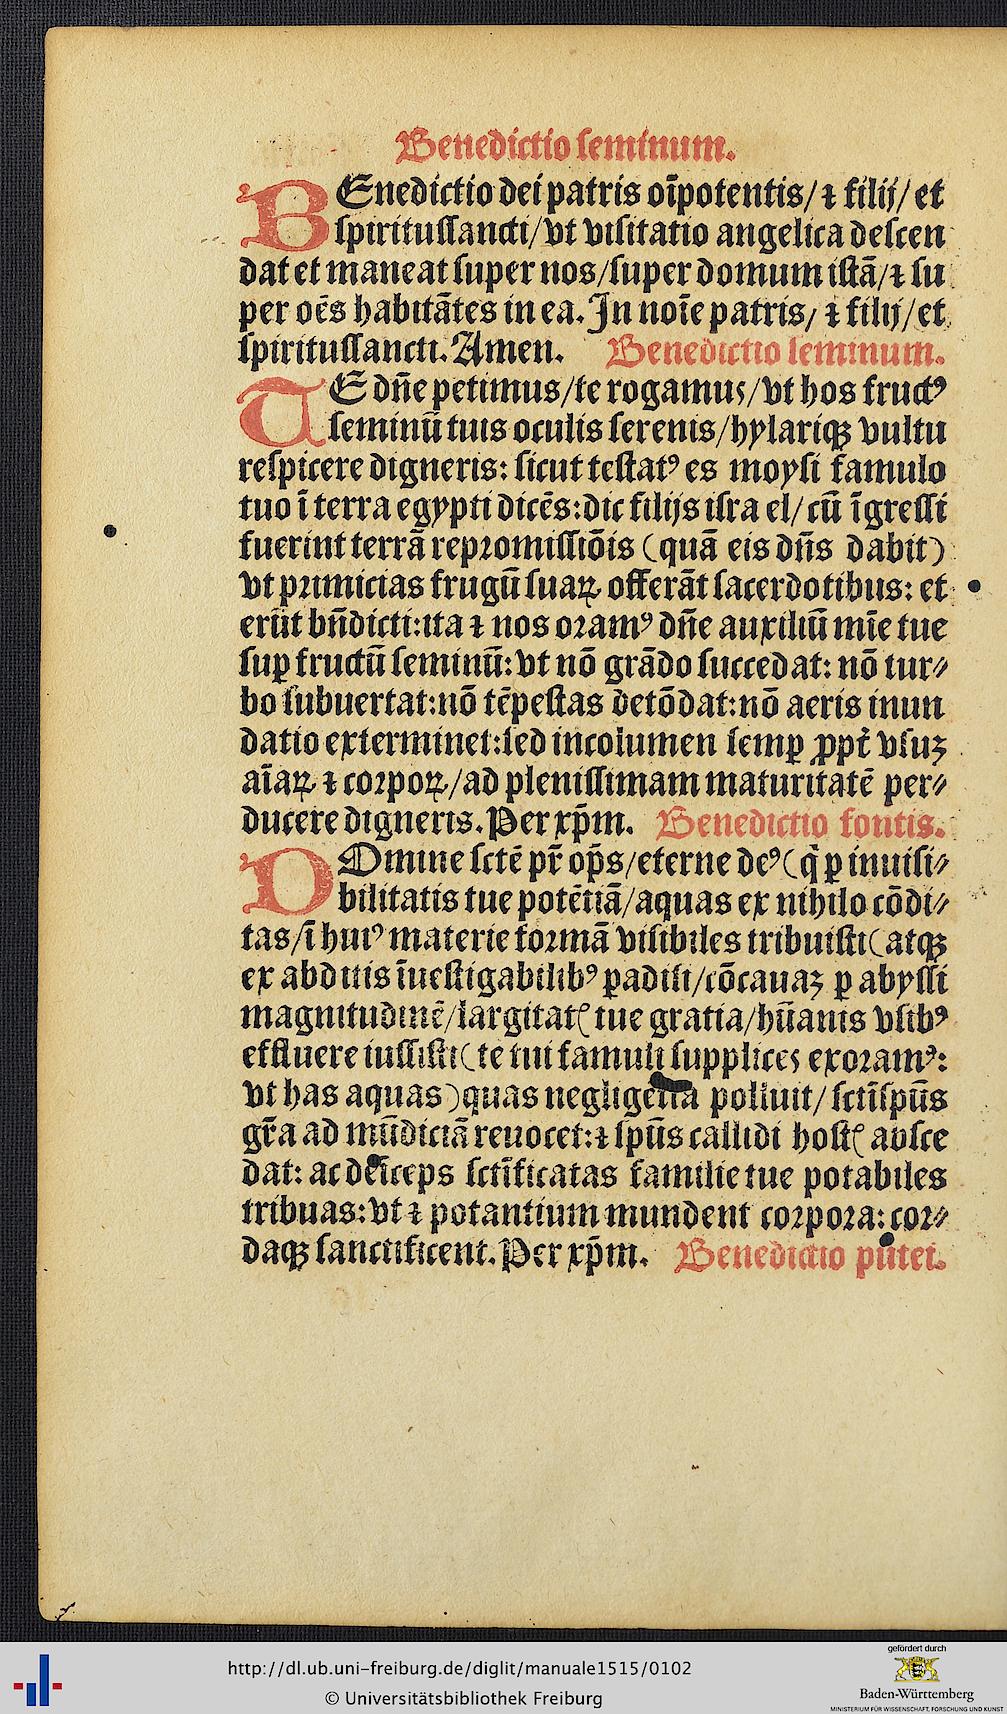 Benedictio seminum.
BEnedictio dei patris oı̄potentis/ ⁊ filij/ et
spiritussancti/ vt visitatio angelica descen
dat et maneat super nos/super domum istā/⁊ su
per oēs habitātes in ea. In noı̄e patris, ⁊ filij/ et
spiritussancti. Amen. Benedictio seminum.
TE dn̄e petimus/te rogamus/vt hos fructꝰ
seminū tuis oculis serenis/hylariqꝫ vultu
respicere digneris: sicut testatꝰ es moysi famulo
tuo ī terra egypti dicēs:dic filijs isra el/ cū īgressi
fuerint terrā repromissiōis (quā eis dn̄s dabit)
vt primicias frugū suaꝝ offerāt sacerdotibus: et
erūt bn̄dicti:ita ⁊ nos oramꝰ dn̄e auxiliū mīe tue
suꝑ fructū seminū: vt nō grādo succedat: nō tur⸗
bo subuertat:nō tēpestas detōdat:nō aeris inun
datio exterminet:sed incolumen semꝑ ꝓpt̄ vsuꝫ
aı̄aꝝ ⁊ corpoꝝ/ad plenissimam maturitatē per⸗
ducere digneris. Per xp̄m. Benedictio fontis.
DOmine sctē pr̄ op̄s/eterne deꝰ (q̇ ꝑ inuisi⸗
bilitatis tue potētiā/aquas ex nihilo cōdi⸗
tas/ī huiꝰ materie formā visibiles tribuisti (atqꝫ
ex abditis īuestigabilibꝰ padisi/cōcauaꝫ ꝑ abyssi
magnitudinē/largitatꝭ tue gratia/hūanis vsibꝰ
effluere iussisti (te tui famuli supplices exoramꝰ:
vt has aquas) quas negligētia polluit/ sctīspūs
gr̄a ad mūdiciā reuocet:⁊ spūs callidi hostꝭ absce
dat: ac deīceps sctı̄ficatas familie tue potabiles
tribuas: vt ⁊ potantium mundent corpora: cor⸗
daqꝫ sanctificent. Per xp̄m. Benedictio putei.
http://dl.ub.uni-freiburg.de/diglit/manuale1515/0102
© Universitätsbibliothek Freiburg
gefördert durch
Baden-Württemberg
MINISTERIUM FÜR WISSENSCHAFT, FORSCHUNG UND KUNST